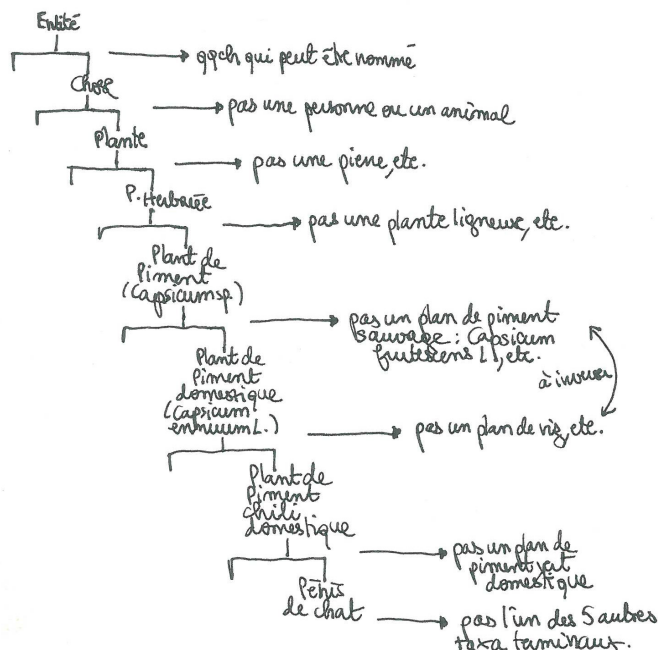 Entité
qqch qui peut être nommé
Chose
pas une personne ou un animal
Plante
pas une pierre, etc.
P. Herbacée
pas une plante ligneuse, etc.
Plant de
Piment
(Capsicum sp.)
pas un plan de piment
sauvage : Capsicum
frutescens L., etc.
à inverser
Plant de
Piment
domestique
(Capsicum
annuum L.)
pas un plan de riz, etc.
Plant de
Piment
chili
domestique
pas un plan de
piment
domestique
Pénis
de chat
pas l'un des 5 autres
taxa terminaux.